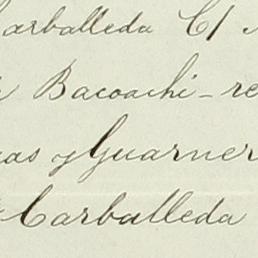 Carballeda C/
Bacoachi - re
cas y Guarner
Carballeda